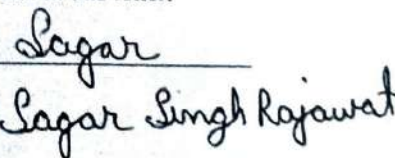 Sagar
Sagar Singh Rajawat